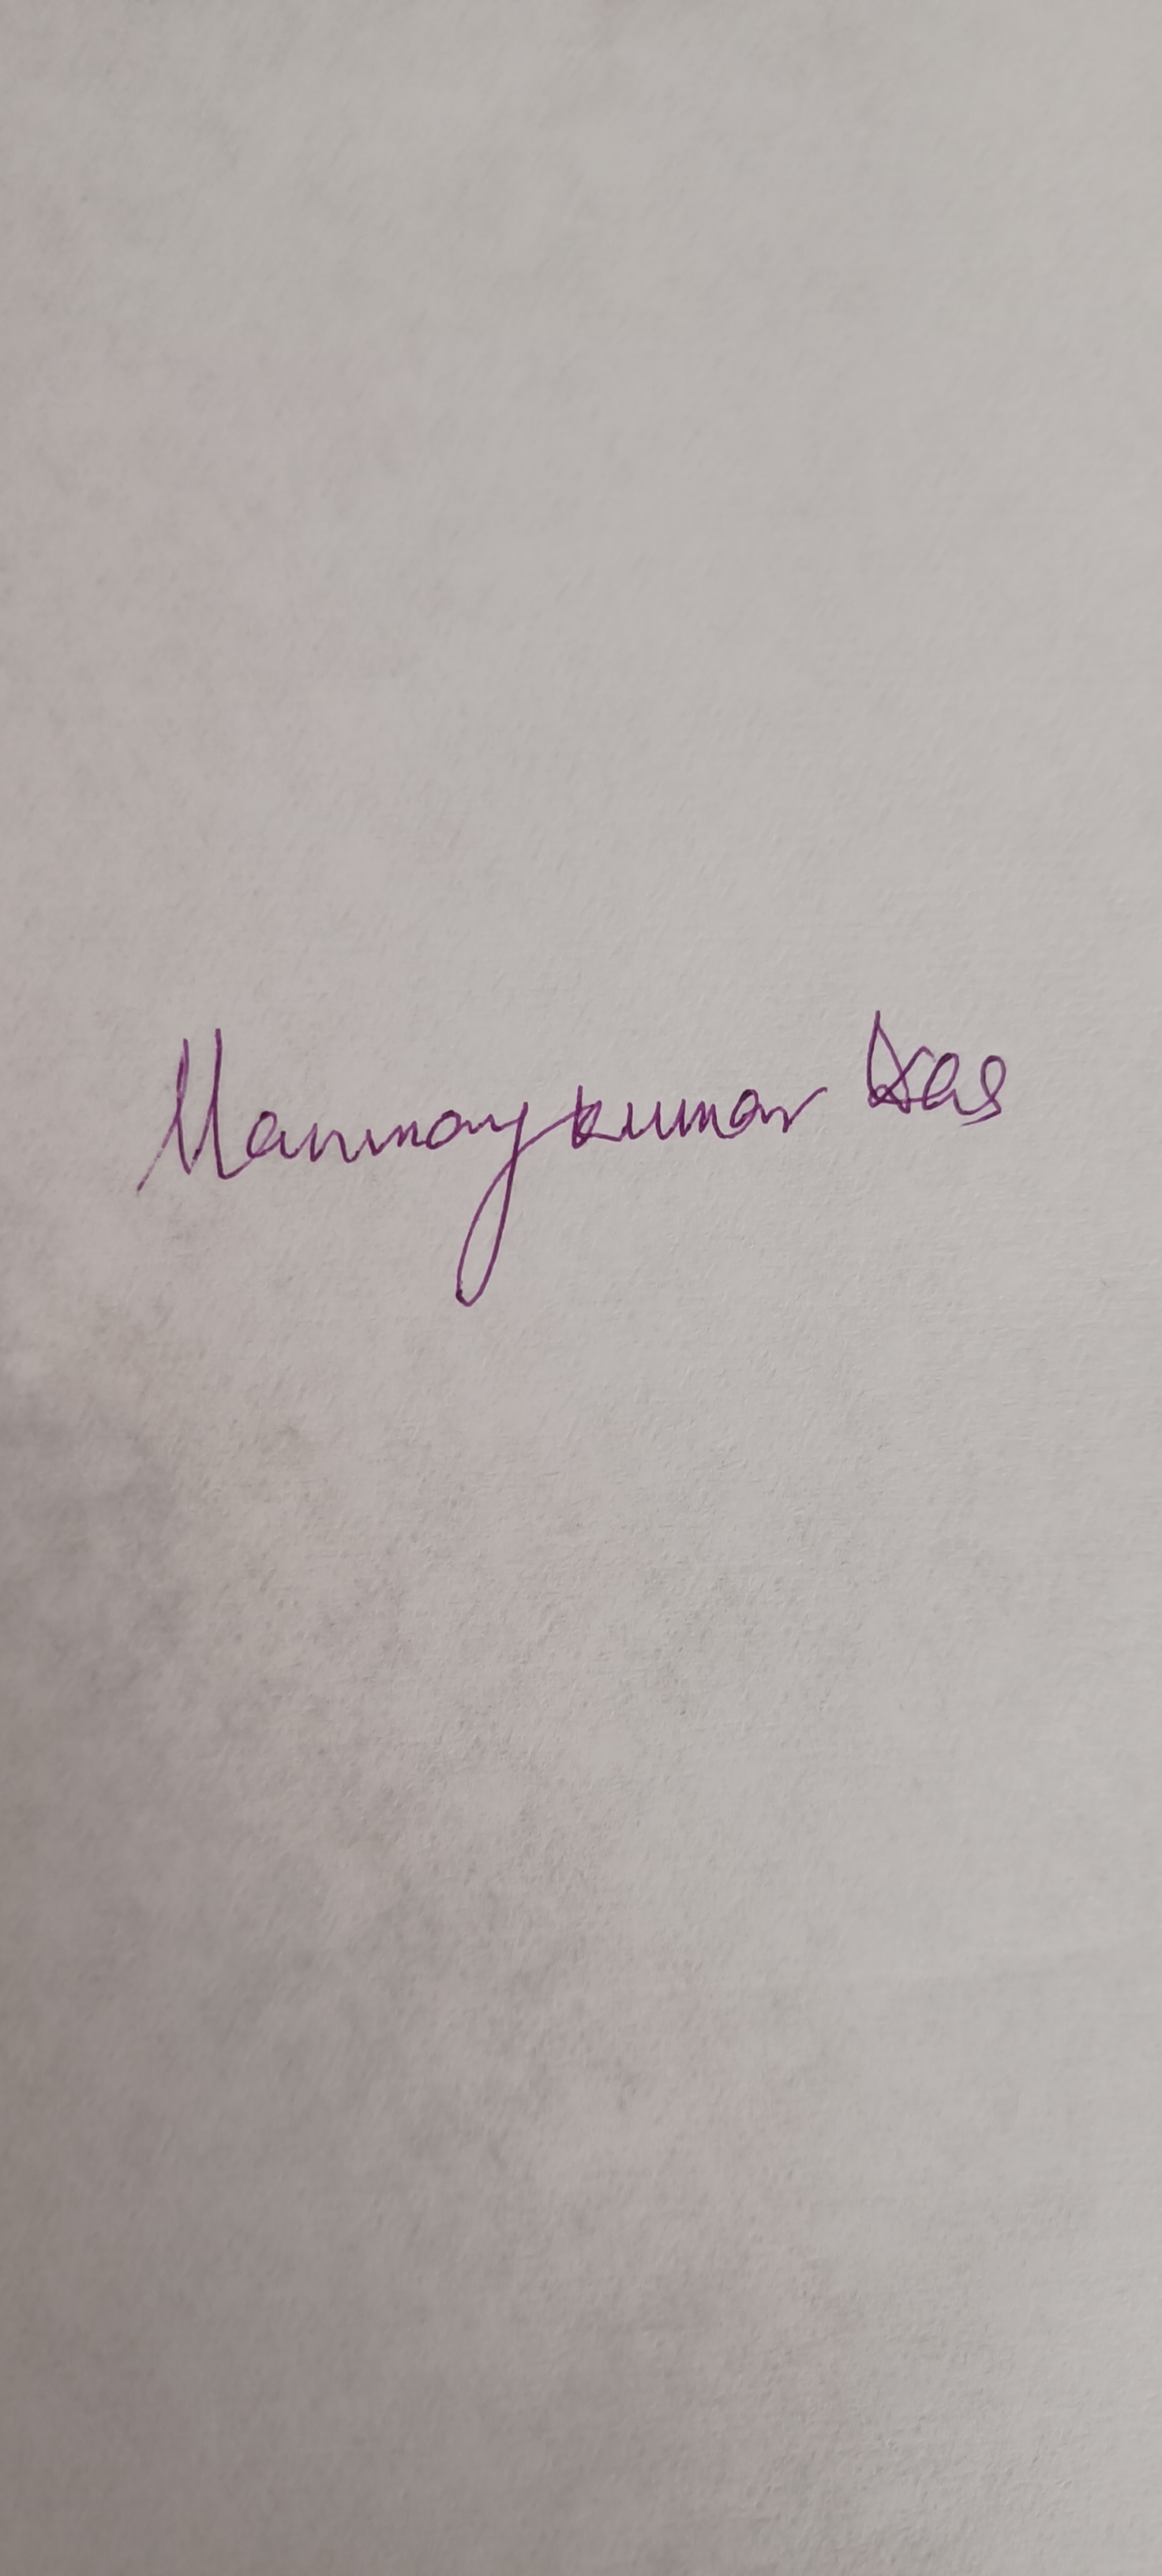 Manmay kumar Das